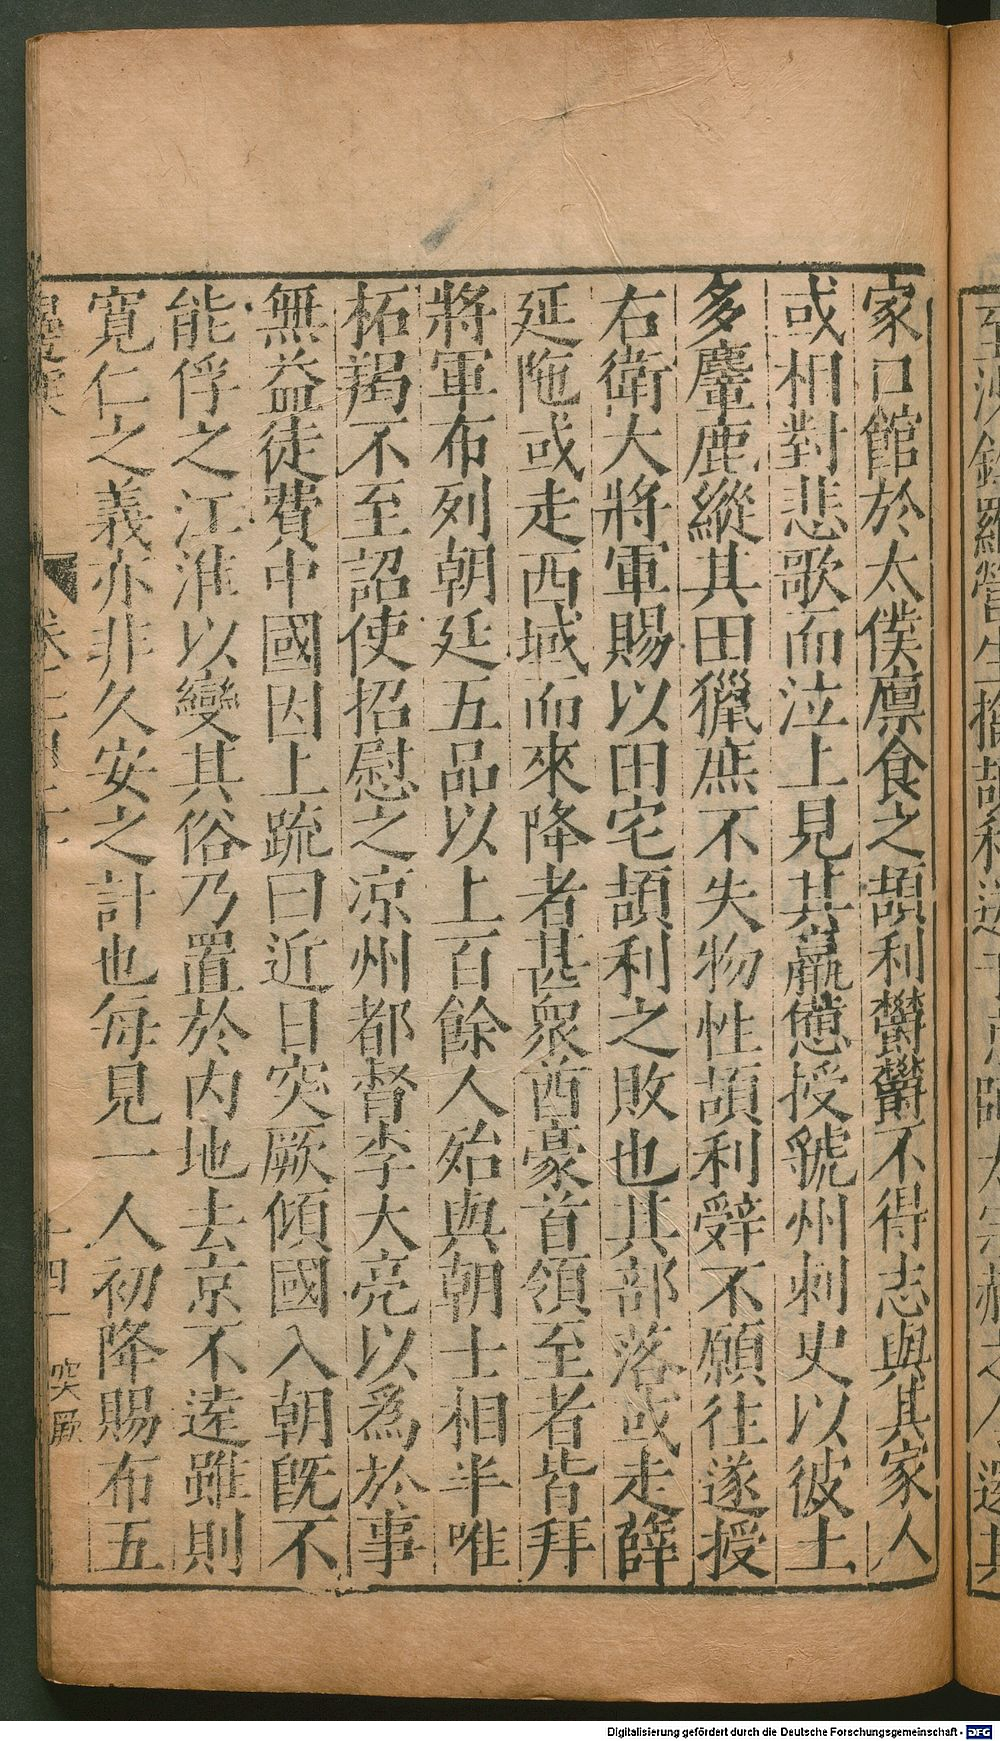 家口館於太僕廪食之頡利鬱鬱不得志與其家人
或相對悲歌而泣上見其羸憊授虢州刺史以彼土
多麞鹿縱其田獵庶不失物性頡利辭不願往遂授
右衛大將軍賜以田宅頡利之敗也其部落或走薛
延陁或走西域而來降者甚衆酋豪首領至者皆拜
將軍布列朝廷五品以上百餘人殆與朝士相半唯
柘羯不至詔使招慰之凉州都督李大亮以爲於事
無益徒費中國因上䟽曰近日突厥傾國入朝旣不
能俘之江淮以變其俗乃置於内地去京不逺雖則
寛仁之義亦非久安之計也每見一人初降賜布五
十四
突厥
Digitalisierung gefördert durch die Deutsche Forschungsgemeinschaft - DFG